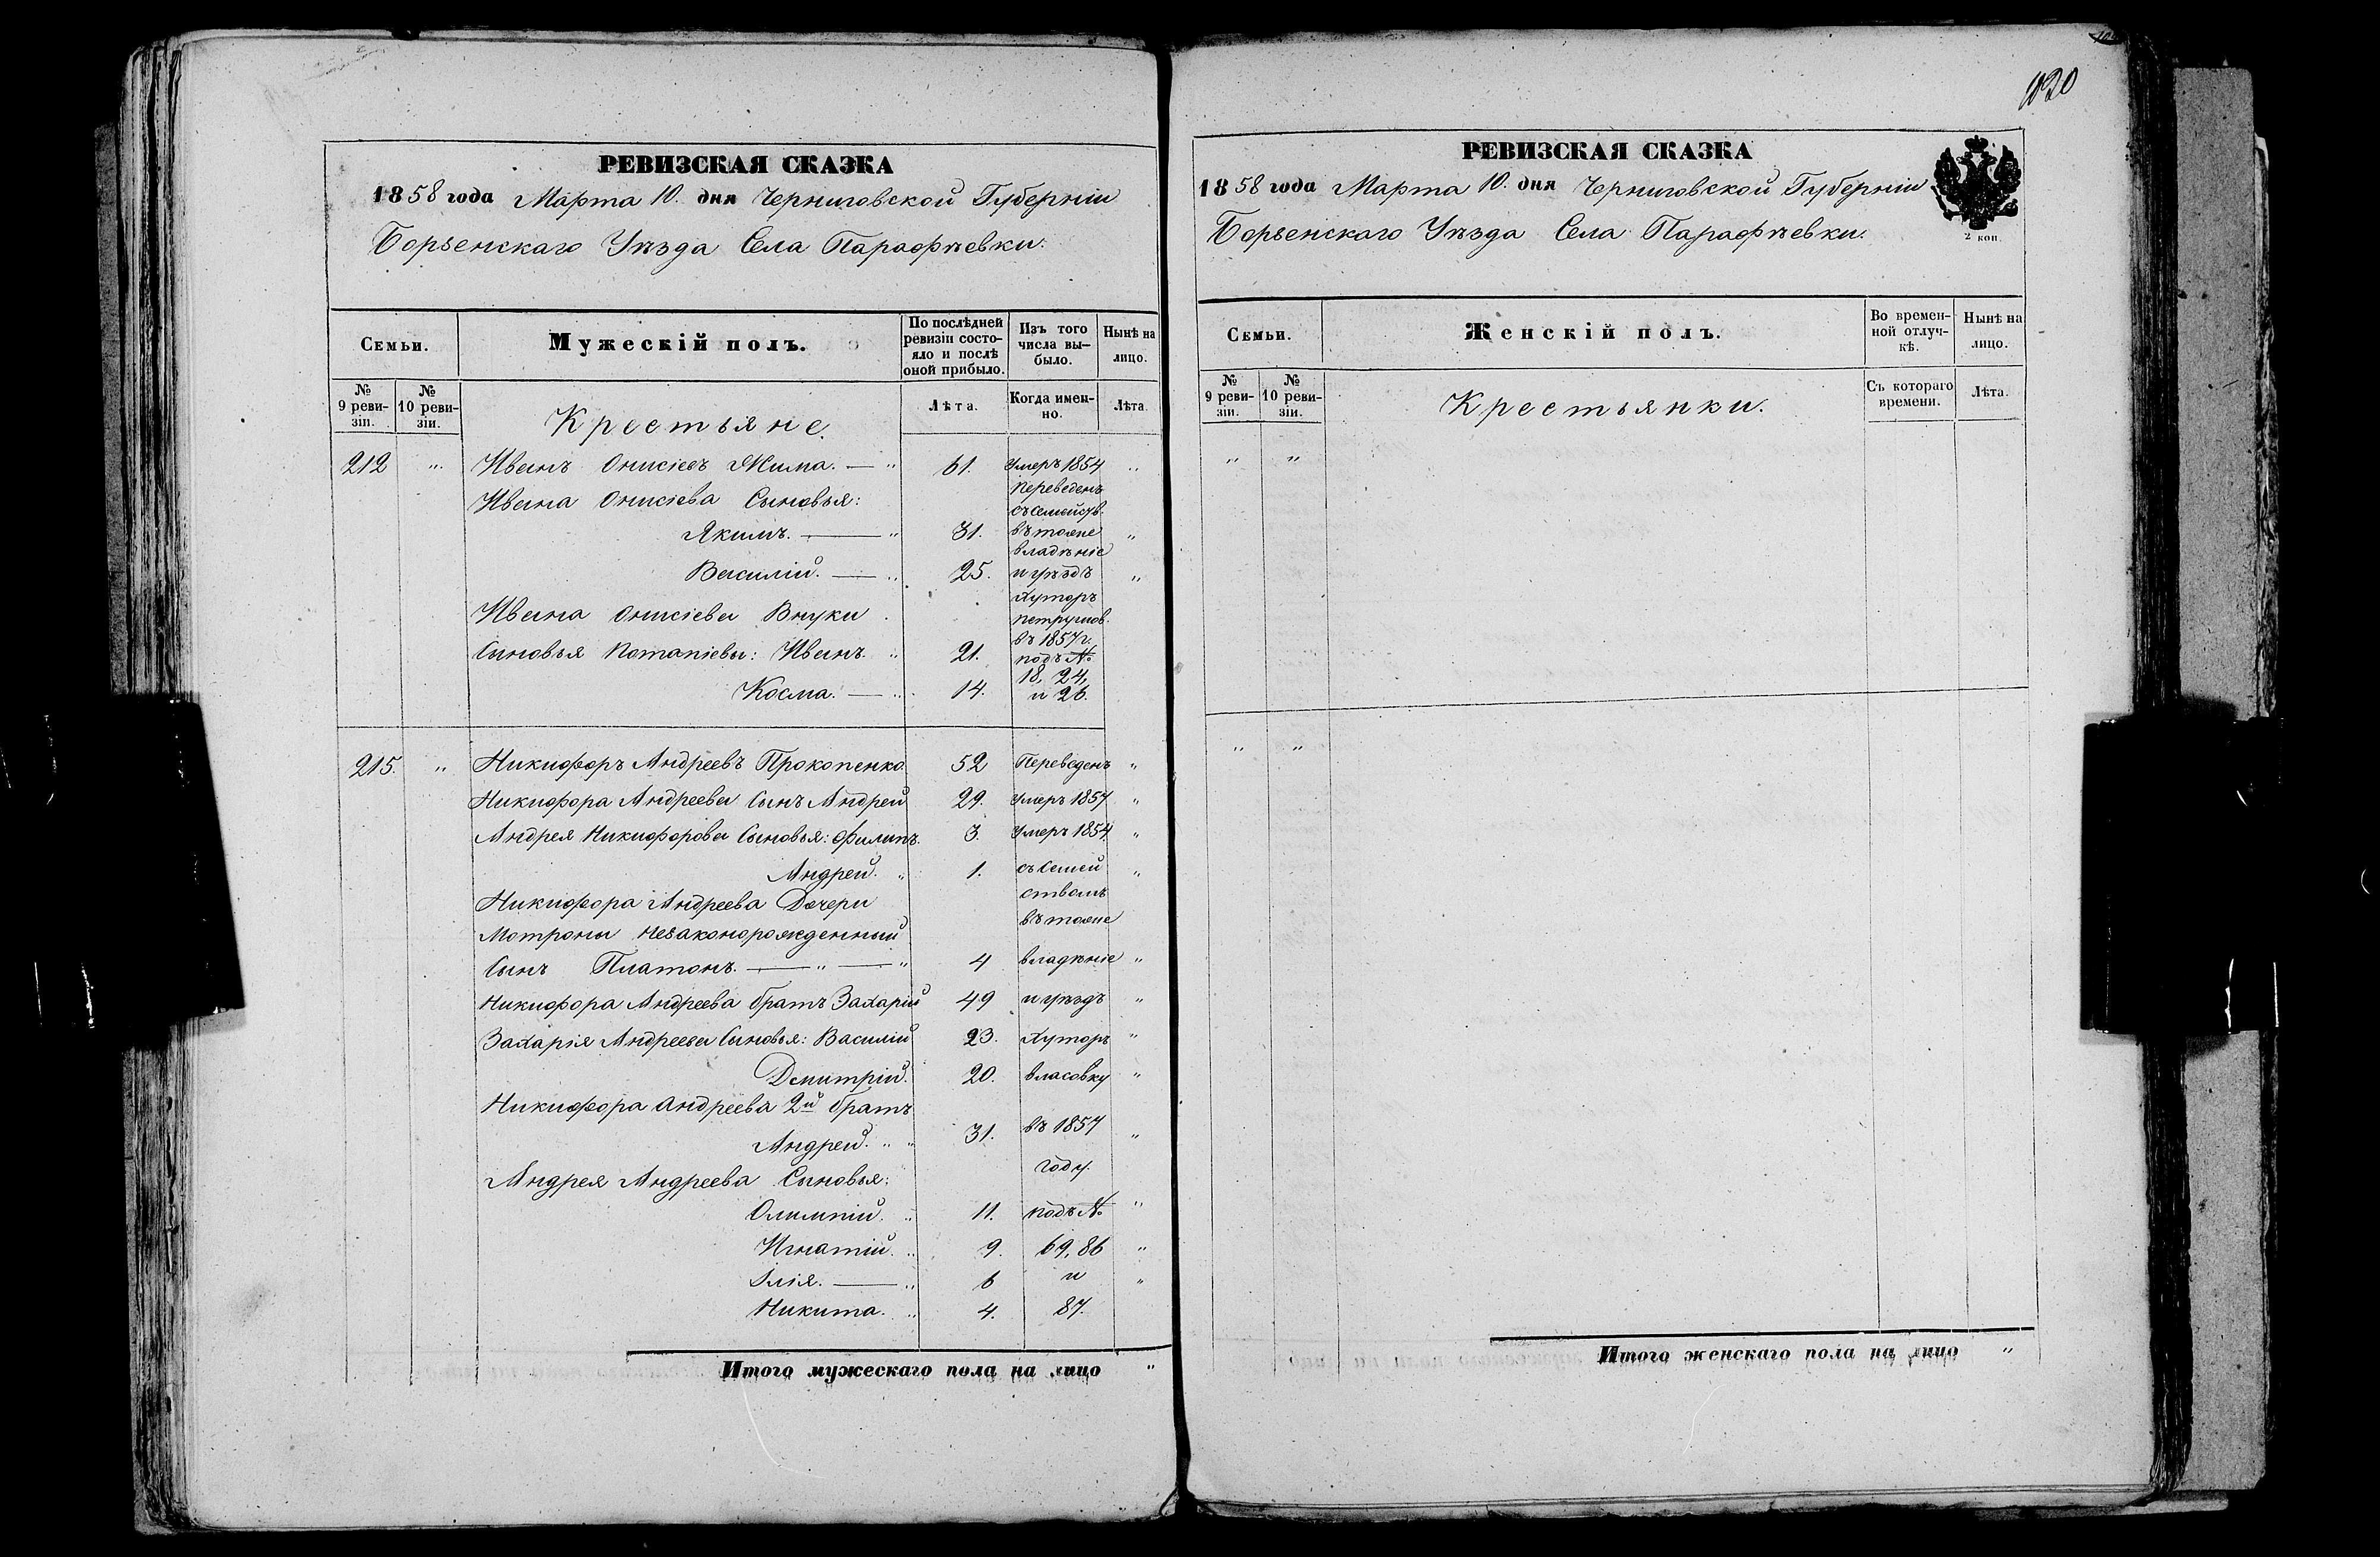 РЕВИЗСКАЯ СКАЗКА
1858 года Марта 10. дня Черниговской Губерніи
Борзенскаго Уѣзда Села Парафѣевки.
Семьи.
Мужескій полъ.
По послѣдней ревизіи состо-
яло и послѣ оной прибыло.
Изъ того числа вы-
было.
Нынѣ на лицо.
№ 9 реви-
зіи.
№ 10 реви-
зіи.
Крестьяне.
Лѣта.
Когда имен-
но.
Лѣта.
212 " Иванъ Онисіевъ Жима. — " 61. Умеръ 1854 "
Ивана Онисіева Сыновья: Переведенъ
съ семейств.
Якимъ. — " 31. въ тоже "
владѣніе
Василій. — " 25. и уѣздъ "
Хуторъ
Ивана Онисіева Внуки
въ 1857 г.
Сыновья Потапіевы: Иванъ. " 21. подъ №
18, 24,
Косма. — " 14. и 26.
215. " Никифоръ Андреевъ Прокопенко 52 Переведенъ "
Никифора Андреева Сынъ Андрей 29. Умеръ 1857 "
Андрея Никифорова Сыновья: Филипъ. 3. Умеръ 1854 "
Андрей. " 1. съ семей "
Никифора Андреева Дочери ствомъ
Мотроны Незаконорожденный въ тоже
Сынъ Платонъ. — " — " 4 владѣніе "
Никифора Андреева братъ Захарій 49 и уѣздъ "
Захарія Андреева Сыновья: Василій 23. Хуторъ "
Дмитрій. 20. Власовку "
Никифора Андреева 2й братъ
Андрей. " " 31. въ 1857 "
Андрея Андреева Сыновья: году.
Олимпій. " 11. подъ № "
Игнатій. " 9. 69, 86 "
Илія. — " 6 и "
Никита. " 4. 87.
Итого мужескаго пола на лицо "
1020
РЕВИЗСКАЯ СКАЗКА
1858 года Марта 10. дня Черниговской Губерніи
Борзенскаго Уѣзда Села Парафѣевки.
2 коп.
Семьи.
Женскій полъ.
Во времен-
ной отлуч-
кѣ.
Нынѣ на лицо.
№ 9 реви-
зіи.
№ 10 реви-
зіи.
Крестьянки.
Съ котораго времени.
Лѣта.
" "
" "
Итого женскаго пола на лицо "